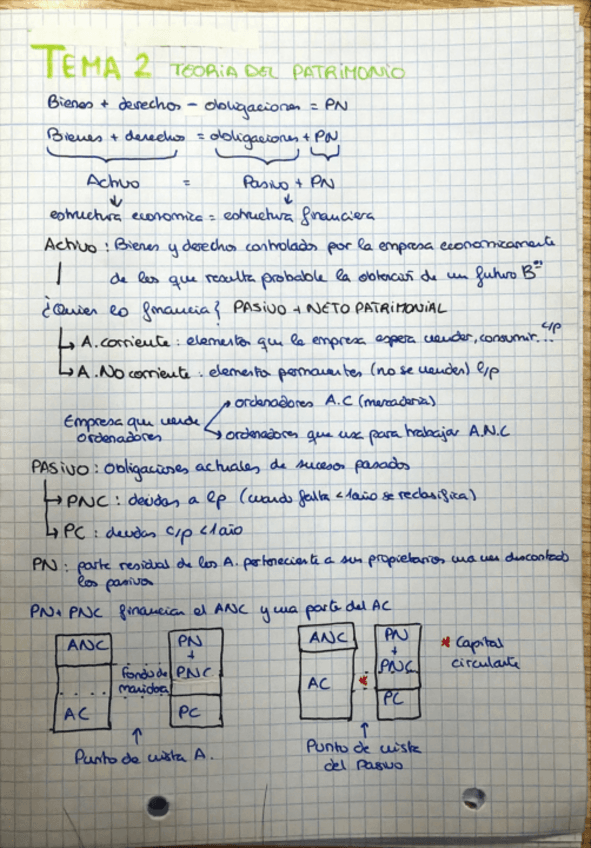 TEMA 2 TEORIA DEL PATRIMONIO
Bienes + derechos - obligaciones = PN
Bienes + derechos = obligaciones + PN
Activo = Pasivo + PN
estructura economica = estructura financiera
Activo: Bienes y derechos controlados por la empresa economicamente
de los que resulta probable la obtención de un futuro Bº
¿Quien lo financia? PASIVO + NETO PATRIMONIAL
A. corriente: elementos que la empresa espera vender, consumir... c/p
A. No corriente: elementos permanentes (no se venden) l/p
Empresa que vende ordenadores
ordenadores A.C (mercaderia)
ordenadores que usa para trabajar A.N.C
PASIVO: Obligaciones actuales de sucesos pasados
PNC: deudas a lp (cuando falta < 1 año se reclasifica)
PC: deudas c/p < 1 año
PN: parte residual de los A. perteneciente a sus propietarios una vez descontado
los pasivos
PN + PNC financian el ANC y una parte del AC
ANC
AC
Fondo de
maniobra
PN
+
PNC
PC
Punto de vista A.
ANC
AC
*
PN
+
PNC
PC
* Capital
circulante
Punto de vista
del Pasivo